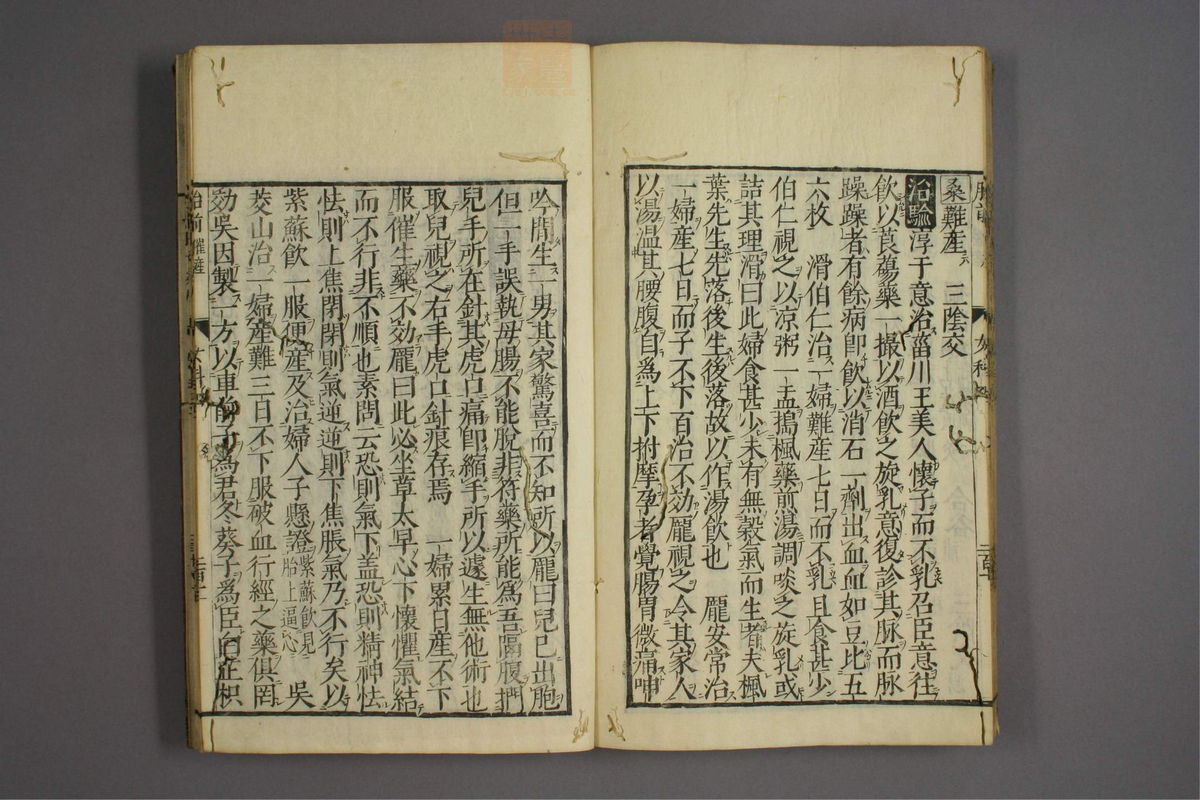 桑難產　三陰交
治驗 淳于意治菑川王美人懷子而不乳召臣意往
飲以莨菪藥一撮以酒飲之旋乳意復診其脈而脈
躁躁者有餘病卽飲以消石一劑出血血如豆比五
六枚　滑伯仁治一婦難產七日而不乳且食甚少
伯仁視之以凉粥一盂搗楓藥煎湯調啖之旋乳或
詰其理滑曰此婦食甚少未有無穀氣而生者夫楓
葉先生先落後生後落故以作湯飲也　龐安常治
一婦產七日而子不下百治不効龐視之令其家人
以湯溫其腰腹自爲上下拊摩孕者覺腸胃微痛呻
吟間生一男其家驚喜而不知所以龐曰兒已出胞
但一手誤執母腸不能脫非符藥所能爲吾隔腹捫
兒手所在針其虎口痛卽縮手所以遽生無他術也
取兒視之右手虎口針痕存焉　一婦累日產不下
服催生藥不効龐曰此必坐草太早心下懷懼氣結
而不行非不順也素問云恐則氣下盖恐則精神怯
怯則上焦閉閉則氣逆逆則下焦脹氣乃不行矣以
紫蘇飲一服便產及治婦人子懸證紫蘇飲見胎上逼心　吳
茭山治一婦產難三日不下服破血行經之藥俱罔
効吳因製一方以車前子爲君冬葵子爲臣白芷枳
胎前　催產
女科